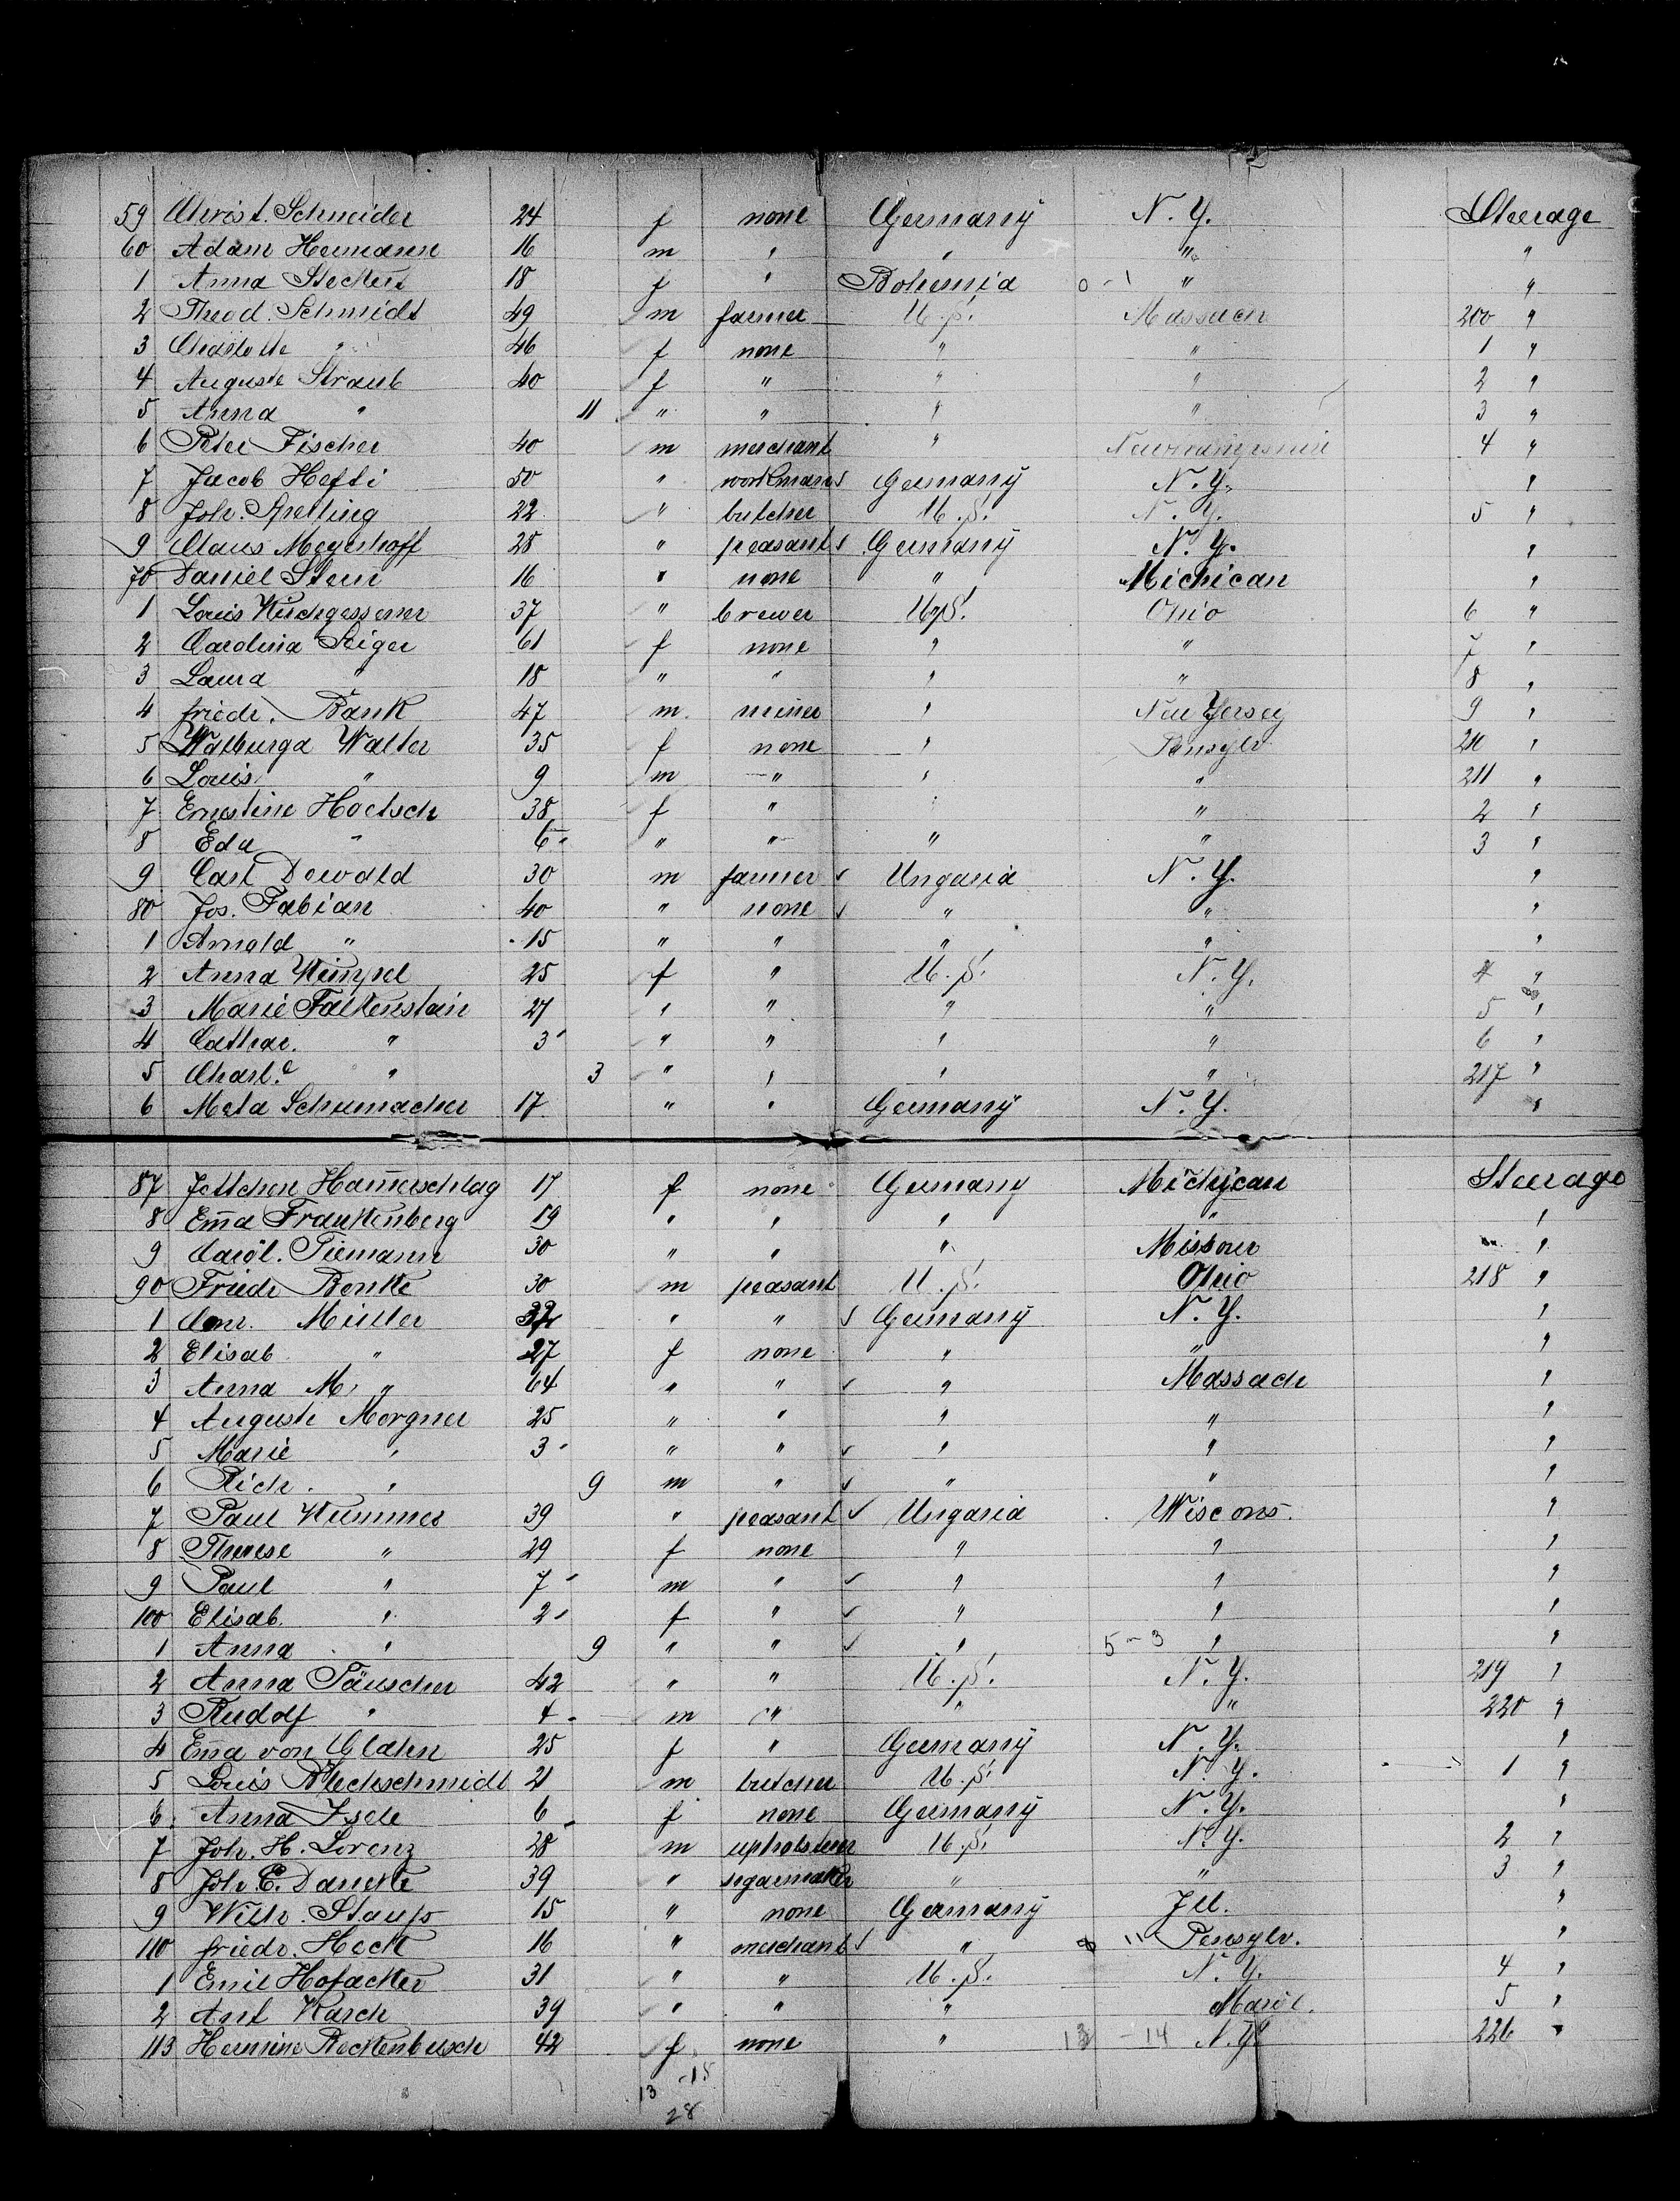 59 Christ. Schneider 24 f none Germany N. Y. Steerage
60 Adam Hermann 16 m " " " "
1 Anna Steckert 18 f " Bohemia 0 - 1 " "
2 Theod. Schmidt 49 m farmer U. S. Massach 200 "
3 Charlotte " 46 f none " " 1 "
4 Auguste Straub 40 f " " " 2 "
5 Anna " 11 " " " " 3 "
6 Peter Fischer 40 m merchant " 4 "
7 Jacob Hefti 50 " workman Germany N. Y. "
8 Joh. Spelling 22 " butcher U. S. N. Y. 5 "
9 Claus Meyerhoff 28 " peasant Germany N. Y. "
70 Daniel Stern 16 " none " Michican "
1 Louis 37 " brewer U. S. Ohio 6 "
2 Carolina Seiger 61 f none " " 7 "
3 Laura " 18 " " " " 8 "
4 friedr. Bank 47 m miner " New Yersey 9 "
5 Walburga Walter 35 f none " Pensylv 210 "
6 Louis " 9 m " " " 211 "
7 Ernestine Hoetsch 38 f " " " 2 "
8 Eda " 6 " " " " 3 "
9 Carl Dewald 30 m farmer Ungaria N. Y. "
80 Jos. Fabian 40 " none " " "
1 Arnold " 15 " " " " "
2 Anna Wimpel 25 f " U. S. N. Y. 4 "
3 Marie Falkenstain 27 " " " " 5 "
4 Cathar. " 3 " " " " 6 "
5 Charl.e " 3 " " " " 217 "
6 Meta Schumacher 17 " " Germany N. Y. "
87 Jettchen Ham̅erschlag 17 f none Germany Michican Steerage
8 Em̅a Frankenberg 19 " " " " "
9 Carol. Tiemann 30 " " " Missour "
90 Friedr Benke 30 m peasant U. S. Ohio 218 "
1 Conr. Müller " " Germany N. Y. "
2 Elisab. " 27 f none " " "
3 Anna M. " 64 " " " Massach "
4 Auguste Morgner 25 " " " " "
5 Marie " 3 " " " " "
6 Rich. " 9 m " " " "
7 Paul Wummer 39 " peasant Ungaria Wiscons. "
8 Therese " 29 f none " " "
9 Paul " 7 m " " " "
100 Elisab. " 2 f " " " "
1 Anna " 9 " " " 5 - 3 " "
2 Anna Täuscher 42 " " U. S. N. Y. 219 "
3 Rudolf " 4 m " " " 220 "
4 Em̅a von Glahn 25 f " Germany N. Y. "
5 Louis Blechschmidt 21 m butcher U. S. N. Y. 1 "
6 Anna Isele 6 f none Germany N. Y. "
7 Joh. H. Lorenz 28 m upholsterer U. S. N. Y. 2 "
8 Joh. E. Daneke 39 " segarmaker " " 3 "
9 Wilh. Staup 15 " none Germany Ill. "
110 friedr. Heck 16 " merchant " Pensylv. "
1 Emil Hofacker 31 " " U. S. N. Y. 4 "
2 Ant Karch 39 " " " 5 "
113 Hermine Recktenbusch 42 f none " 13 - 14 N. Y. 226 "
13 - 15
28